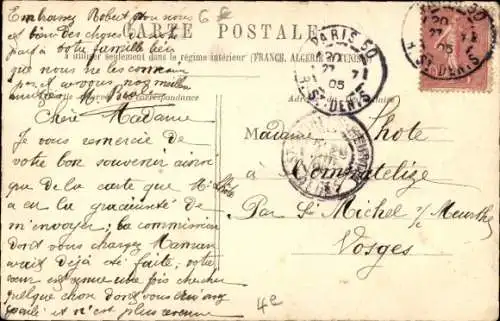 Embrassez Robert pour nous
et bien des choses de notre
part à votre famille bien
que nous ne les connaissons
CARTE POSTALE
à utiliser seulement dans le régime intérieur (FRANCE, ALGERIE et TUNISIE)
Correspondance
PARIS 50
20
27
05
R. St DENIS
PARIS 50
20
27
05
R. St DENIS
Chère Madame
Je vous remercie de
votre bon souvenir ainsi
que de la carte que M.
a eu la gracieuseté de
m'envoyer; la commission
dont vous chargez Maman
avait déjà été faite, votre
est venue une fois chercher
quelque chose dont vous
parlé et n'est plus revenue
Madame Lhote
à
Par St Michel s/ Meurthe
Vosges
4e